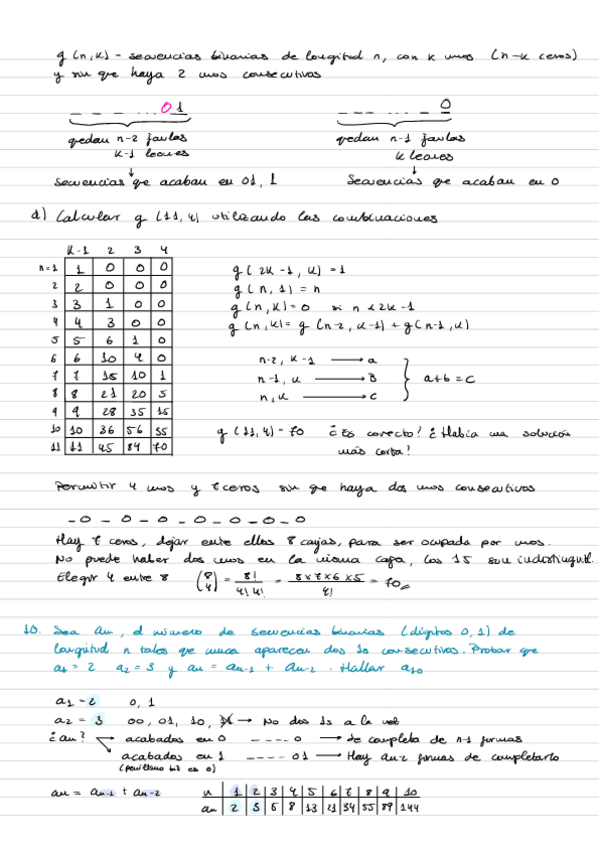 g (n,k) - secuencias binarias de longitud n, con k unos (n-k ceros)
y sin que haya 2 unos consecutivos
_ _ _ _ ... 0 1
_ _ _ _ ... _ 0
quedan n-2 jaulas
quedan n-1 jaulas
k-1 leones
k leones
secuencias que acaban en 01, 1
secuencias que acaban en 0
d) Calcular g (11,4) utilizando las combinaciones
k=1 2 3 4
n=1 1 0 0 0
2 2 0 0 0
3 3 1 0 0
4 4 3 0 0
5 5 6 1 0
6 6 10 4 0
7 7 15 10 1
8 8 21 20 5
9 9 28 35 15
10 10 36 56 35
11 11 45 84 70
g ( 2k -1 , k ) = 1
g ( n, 1 ) = n
g (n, k) = 0 si n < 2k-1
g (n, k) = g (n-2, k-1) + g (n-1, k)
n-2, k-1 → a
n-1, k → B
n, k → c
a+b = c
g (11,4) = 70 ¿Es correcto? ¿Había una solución
más corta?
Permitir 4 unos y 7 ceros sin que haya dos unos consecutivos
_ 0 _ 0 _ 0 _ 0 _ 0 _ 0 _ 0
Hay 7 ceros, dejar entre ellos 8 cajas, para ser ocupada por unos.
No puede haber dos unos en la misma caja, los 1s son indistinguibl.
Elegir 4 entre 8 (8 4) = 8! / 4! 4! = 8 x 7 x 6 x 5 / 4! = 70
10. Sea an, el número de secuencias binarias (dígitos 0, 1) de
longitud n tales que nunca aparecen dos 1s consecutivos. Probar que
a1 = 2 a2 = 3 y an = an-1 + an-2 . Hallar a10
a1 = 2 0, 1
a2 = 3 00, 01, 10, 11 → No dos 1s a la vez
¿an? acabados en 0 - - - - 0 → se completa de n-1 formas
acabados en 1 - - - - 01 → Hay an-2 formas de completarlo
(penúltimo bit es 0)
an = an-1 + an-2
n 1 2 3 4 5 6 7 8 9 10
an 2 3 5 8 13 21 34 55 89 144